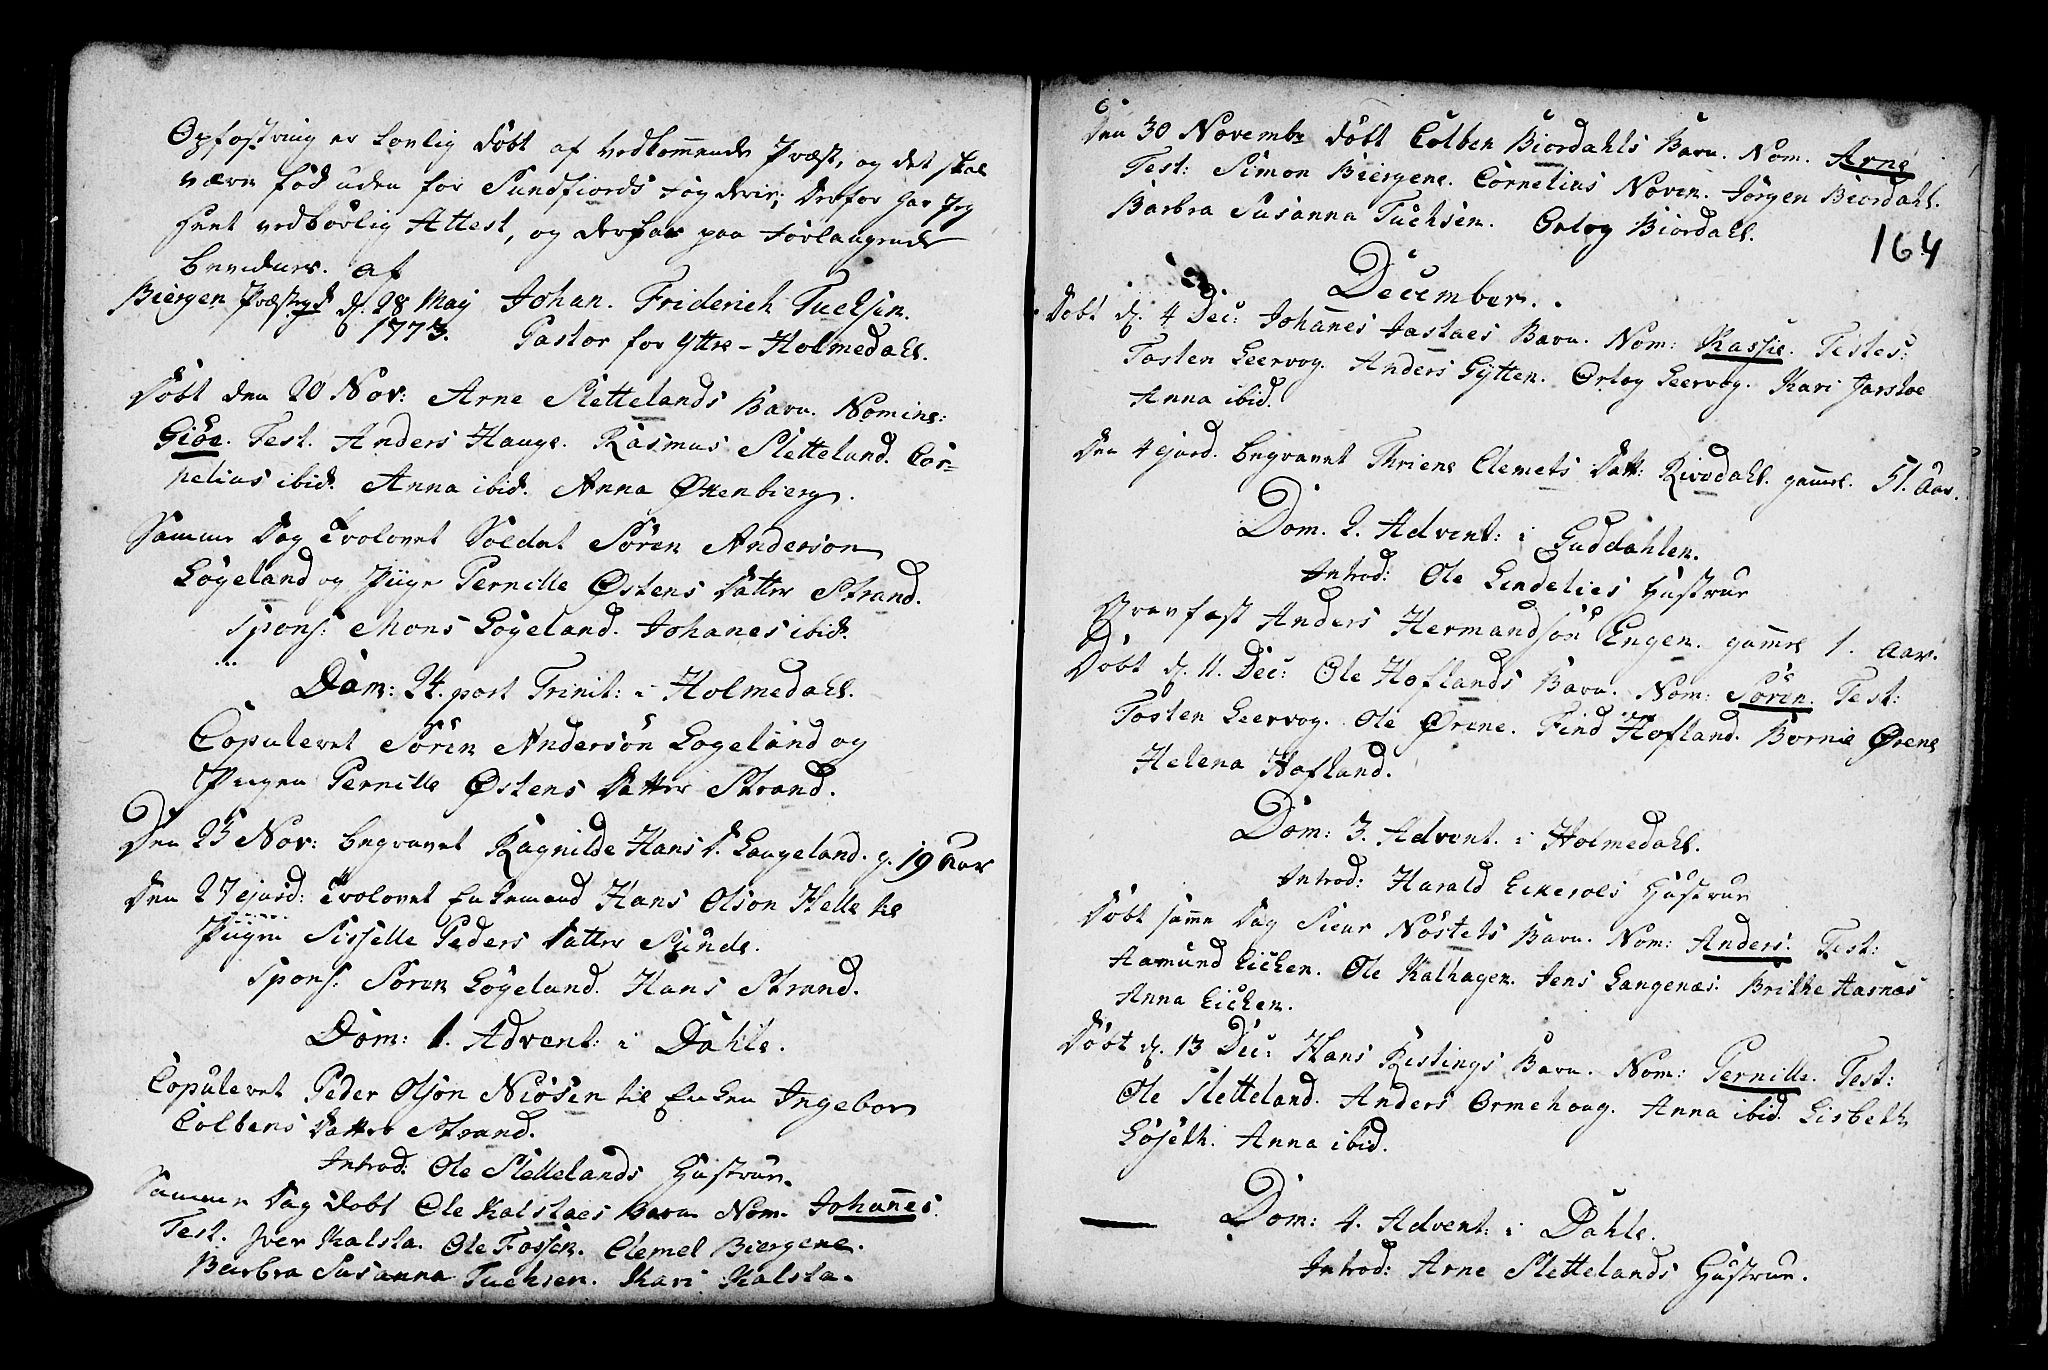 Opfostring er lovlig döbt af vedkommende Præst, og det skal
være fød uden for Sundfiords Fogderie; Derfor har Jeg
hent vedbörlig Attest, og derfor paa forlangende
bevidnes. af
Biergen Præstegd d. 28 May Johan. Friderich Tuchsen.
1773. Pastor for Yttre-Holmedahl.
Döbt den 20 Nov: Arne Slettelands Barn. Nomine:
Giöe. Test. Anders Hauge. Rasmus Sletteland. Cor=
nelius ibid. Anna ibid. Anna Øxenbierg.
Samme Dag Trolovet Soldat Sören Andersön
Lögeland og Piige Pernille Østens Datter Strand.
Spons: Mons Lögeland. Johanes ibid.
Dom: 24. post Trinit: i Holmedahl.
Copuleret Sören Andersön Lögeland og
Piigen Pernille Østens Datter Strand.
Den 25 Nov: begravet Ragnilde Hans D. Laugeland. g. 19 Aar
Den 27 ejusd: Trolovet Enkemand Hans Olsön Helle til
Piigen Sisselle Peders Datter Sunde.
Spons. Sören Lögeland. Hans Strand.
Dom: 1. Advent: i Dahle.
Copuleret Peder Olsön Niösen til Enken Ingebor
Colbens Datter Strand.
Introd: Ole Slettelands Hustrue.
Samme Dag Döbt Ole Kalstaes Barn Nom. Johannes.
Test. Iver Kalsta. Ole Fossen. Clemet Biergene.
Barbra Susanna Tuchsen. Kari Kalsta.
Den 30 Novembr döbt Colben Biordahls Barn. Nom. Arne
Test: Simon Biergene. Cornelius Noven. Jörgen Biordahl.
Barbra Susanna Tuchsen. Orloy Biordahl.
164
December.
Döbt d. 4 Dec: Johannes Jastaes Barn. Nom: Kassie. Testes:
Tosten Leervog. Anders Gytten. Orloy Leervog. Kari Jarstoe
Anna ibid.
Den 4 ejusd. begravet Thriene Clemets Datt: Rivedahl. gammel. 51. Aar.
Dom. 2. Advent: i Guddahlen.
Introd: Ole Lindelies Hustrue
Gravfæst Anders Hermandsön Engen. gammel 1. Aar.
Döbt d. 11. Dec: Ole Hoflands Barn. Nom: Sören. Test:
Tosten Leervog. Ole Ørene. Find Hofland. Bornie Ørene
Helena Hofland.
Dom: 3. Advent. i Holmedahl.
Introd: Harald Eikeroes Hustrue
Döbt samme Dag Sieur Nöstets Barn. Nom: Anders. Test:
Aamund Eichen. Ole Kalhagen. Jens Langenæs. Brithe Hasnæs
Anna Eichen.
Döbt d. 13 Dec: Hans Ristings Barn. Nom: Pernille. Test:
Ole Sletteland. Anders Ormehoug. Anna ibid. Lisbeth
Löseth. Anna ibid.
Dom: 4. Advent: i Dahle.
Introd: Arne Slettelands Hustrue.